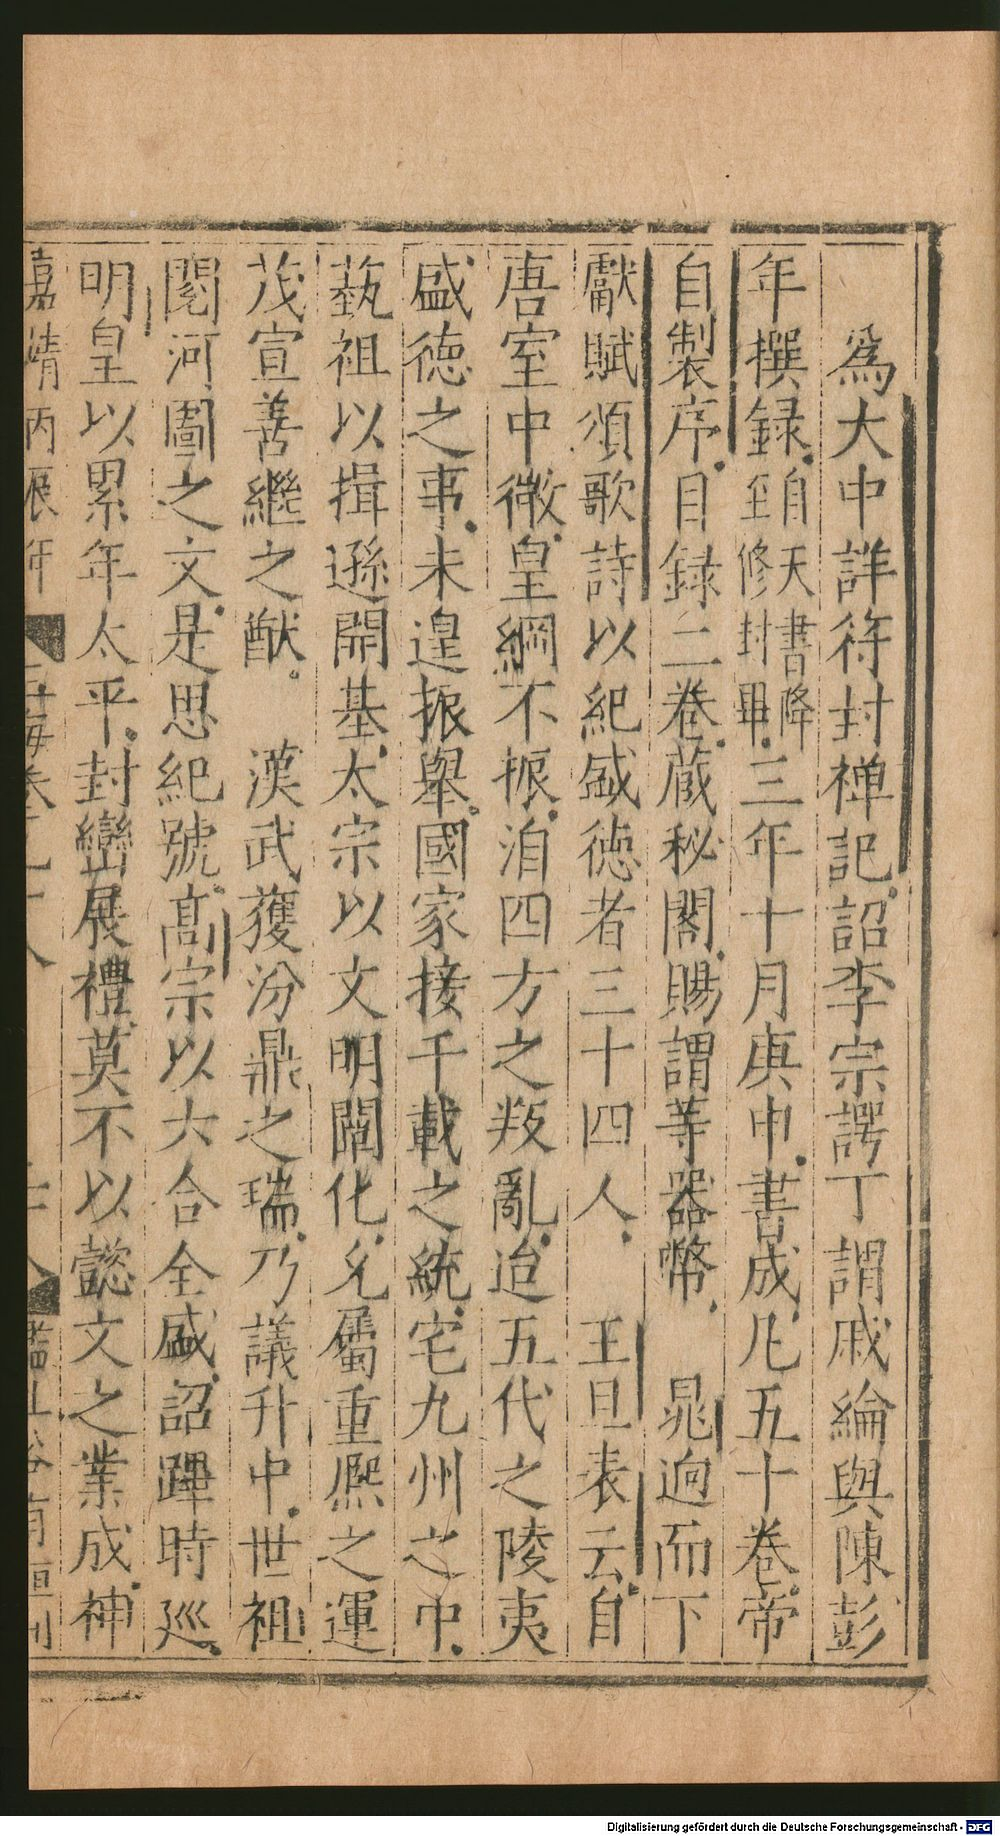 為大中詳符封禪記詔李宗諤丁謂戚綸與陳彭
年撰録自天書降至修封畢三年十月庚申書成凡五十卷帝
自製序目録二卷蔵秘閣賜謂等器幣 晁迥而下
獻賦頌歌詩以紀盛德者三十四人 王旦表云自
唐室中微皇綱不振洎四方之叛亂迨五代之陵夷
盛德之事未遑振舉國家接千載之統宅九州之中
藝祖以揖遜開基太宗以文明闡化允屬重熈之運
茂宣善繼之猷 漢武獲汾鼎之瑞乃議升中世祖
閱河圖之文是思紀號髙宗以六合全盛詔蹕時廵
明皇以累年太平封巒展禮莫不以懿文之業成神
嘉靖丙辰年 玉海卷 監生 有恒刊
Digitalisierung gefördert durch die Deutsche Forschungsgemeinschaft - DFG